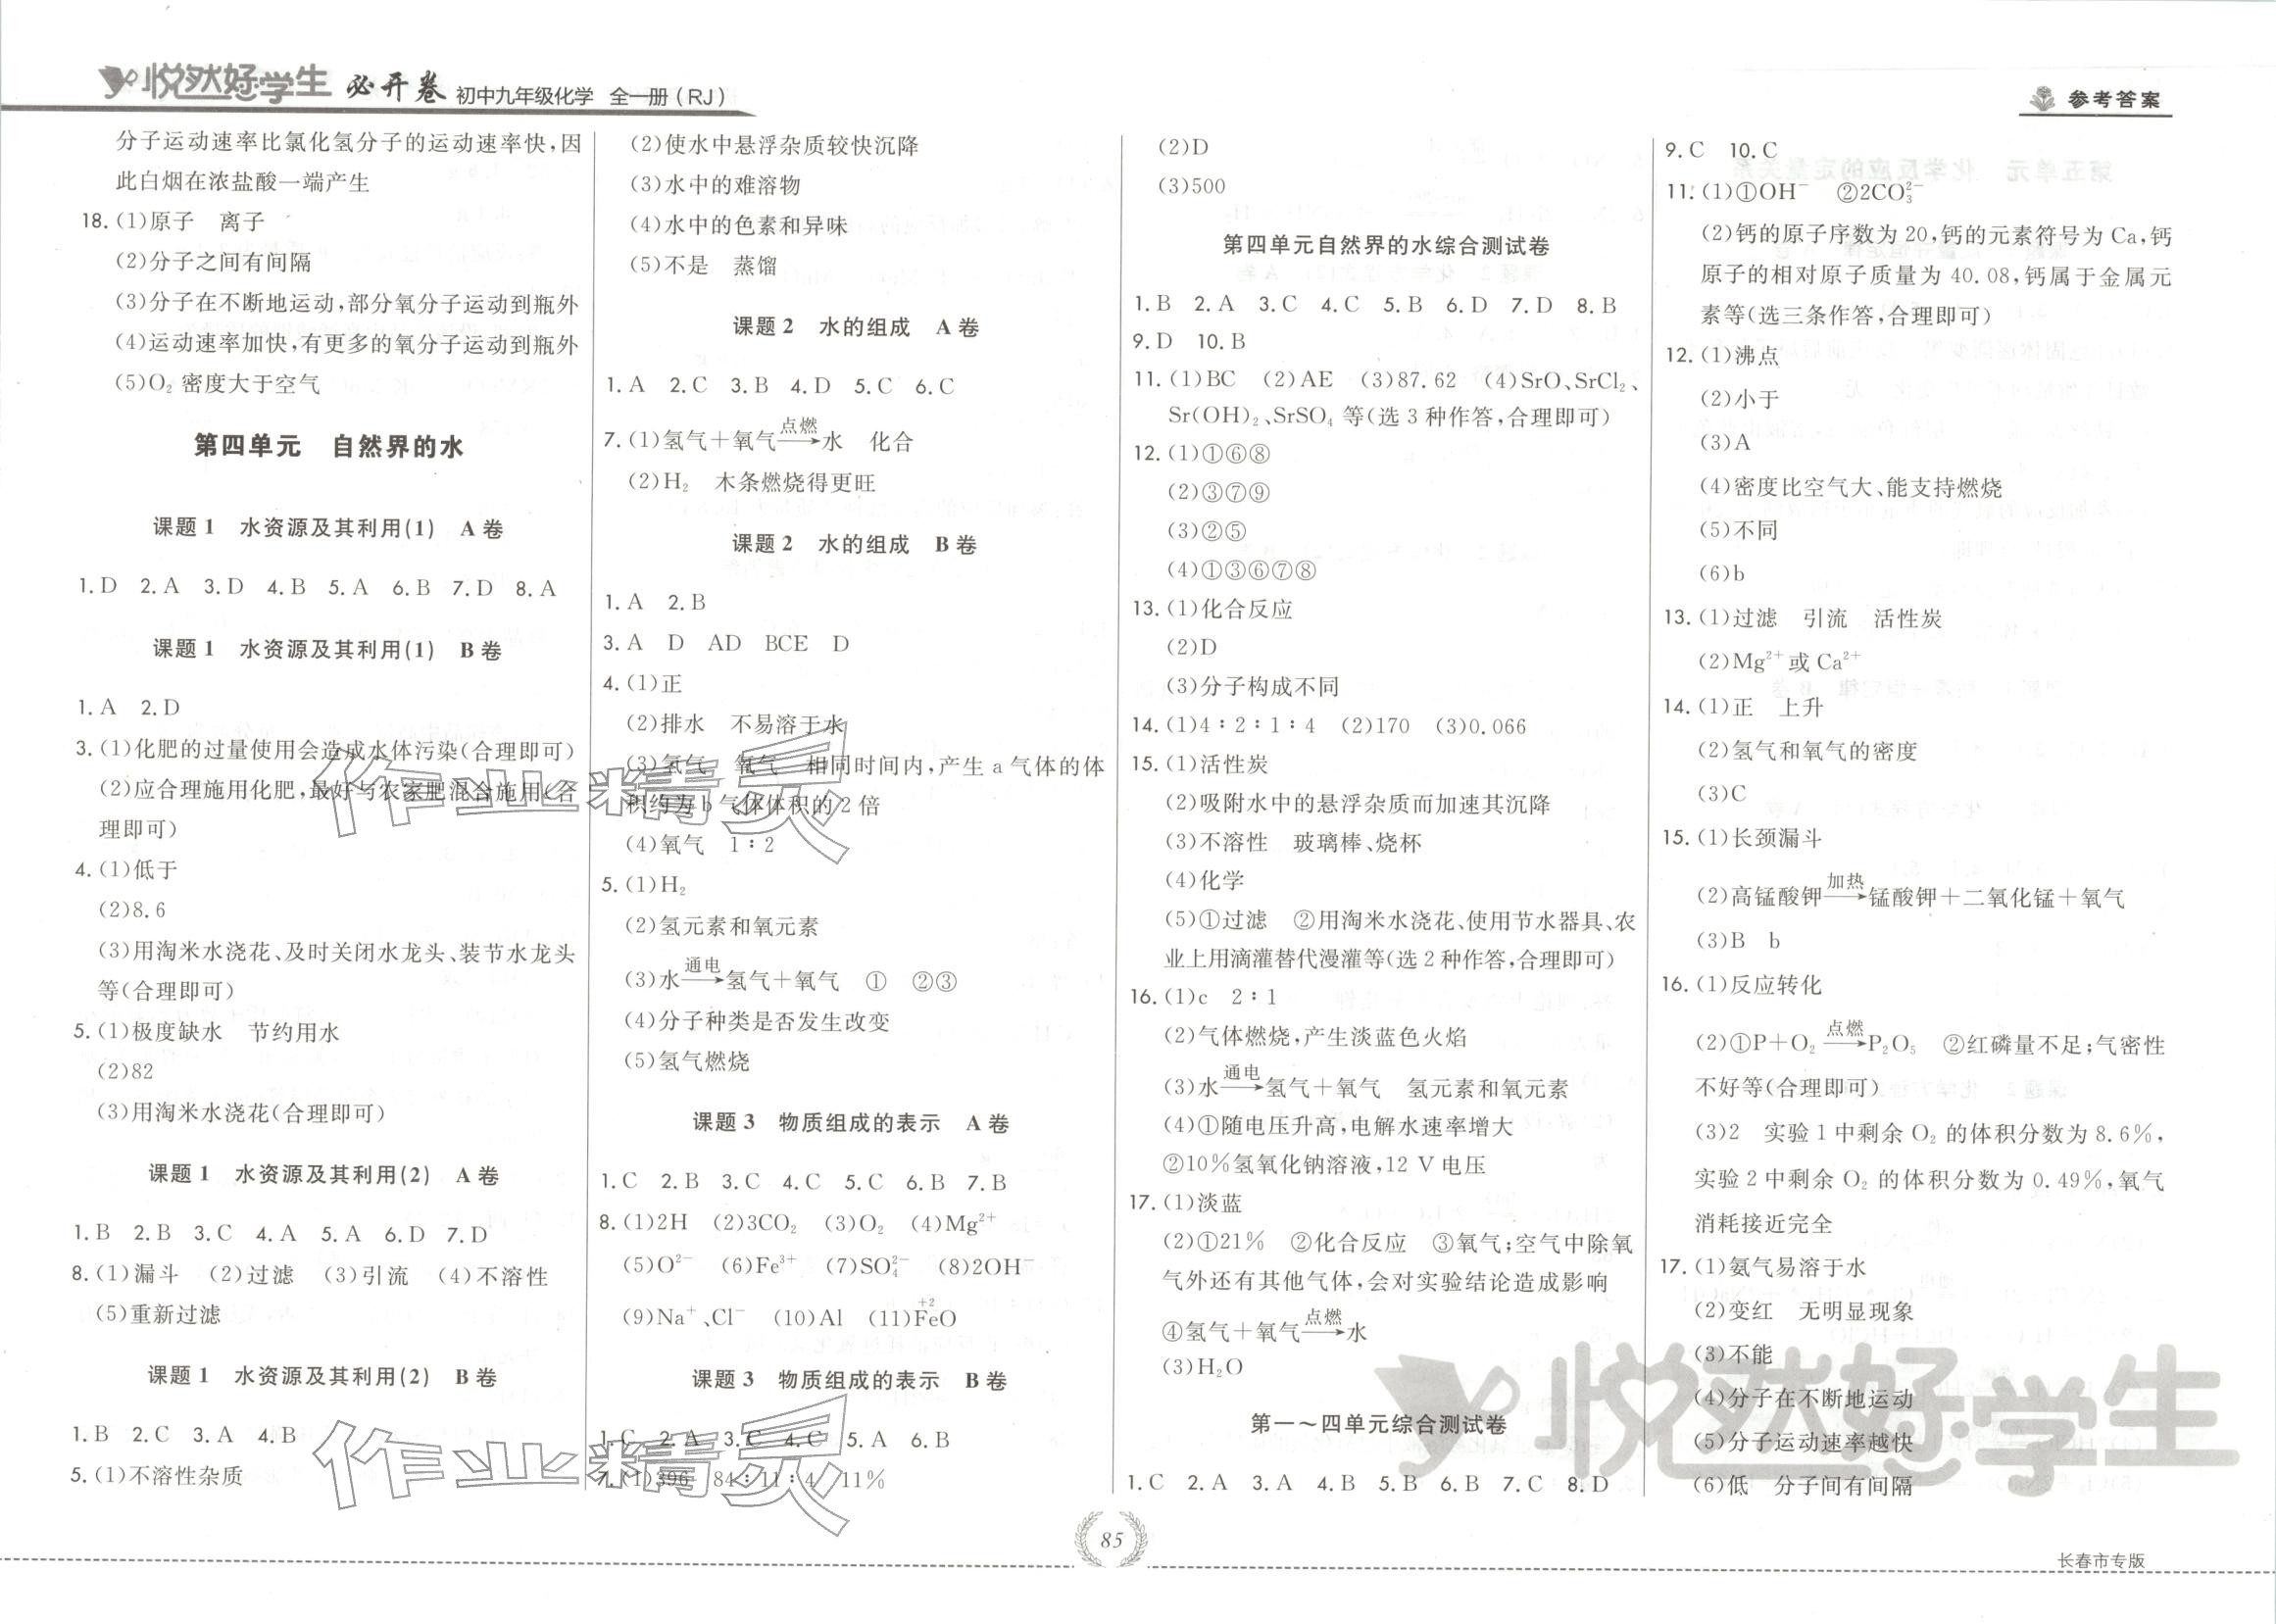 悦然好学生 必开卷 初中九年级化学 全一册(RJ)
参考答案
分子运动速率比氯化氢分子的运动速率快,因
此白烟在浓盐酸一端产生
18.(1)原子 离子
(2)分子之间有间隔
(3)分子在不断地运动,部分氧分子运动到瓶外
(4)运动速率加快,有更多的氧分子运动到瓶外
(5)O₂ 密度大于空气
第四单元 自然界的水
课题1 水资源及其利用(1) A卷
1.D 2.A 3.D 4.B 5.A 6.B 7.D 8.A
课题1 水资源及其利用(1) B卷
1.A 2.D
3.(1)化肥的过量使用会造成水体污染(合理即可)
(2)应合理施用化肥,最好与农家肥混合施用(合
理即可)
4.(1)低于
(2)8.6
(3)用淘米水浇花、及时关闭水龙头、装节水龙头
等(合理即可)
5.(1)极度缺水 节约用水
(2)82
(3)用淘米水浇花(合理即可)
课题1 水资源及其利用(2) A卷
1.B 2.B 3.C 4.A 5.A 6.D 7.D
8.(1)漏斗 (2)过滤 (3)引流 (4)不溶性
(5)重新过滤
课题1 水资源及其利用(2) B卷
1.B 2.C 3.A 4.B
5.(1)不溶性杂质
(2)使水中悬浮杂质较快沉降
(3)水中的难溶物
(4)水中的色素和异味
(5)不是 蒸馏
课题2 水的组成 A卷
1.A 2.C 3.B 4.D 5.C 6.C
7.(1)氢气+氧气 点燃→ 水 化合
(2)H₂ 木条燃烧得更旺
课题2 水的组成 B卷
1.A 2.B
3.A D AD BCE D
4.(1)正
(2)排水 不易溶于水
(3)氢气 氧气 相同时间内,产生a气体的体
积约为b气体体积的2倍
(4)氧气 1∶2
5.(1)H₂
(2)氢元素和氧元素
(3)水 通电→ 氢气+氧气 ① ②③
(4)分子种类是否发生改变
(5)氢气燃烧
课题3 物质组成的表示 A卷
1.C 2.B 3.C 4.C 5.C 6.B 7.B
8.(1)2H (2)3CO₂ (3)O₂ (4)Mg²⁺
(5)O²⁻ (6)Fe³⁺ (7)SO₄²⁻ (8)2OH⁻
(9)Na⁺、Cl⁻ (10)Al (11)Fe(+2)O
课题3 物质组成的表示 B卷
1.C 2.A 3.C 4.C 5.A 6.B
7.(1)396 84∶11∶4 11%
(2)D
(3)500
第四单元自然界的水综合测试卷
1.B 2.A 3.C 4.C 5.B 6.D 7.D 8.B
9.D 10.B
11.(1)BC (2)AE (3)87.62 (4)SrO、SrCl₂、
Sr(OH)₂、SrSO₄ 等(选3种作答,合理即可)
12.(1)①⑥⑧
(2)③⑦⑨
(3)②⑤
(4)①③⑥⑦⑧
13.(1)化合反应
(2)D
(3)分子构成不同
14.(1)4∶2∶1∶4 (2)170 (3)0.066
15.(1)活性炭
(2)吸附水中的悬浮杂质而加速其沉降
(3)不溶性 玻璃棒、烧杯
(4)化学
(5)①过滤 ②用淘米水浇花、使用节水器具、农
业上用滴灌替代漫灌等(选2种作答,合理即可)
16.(1)c 2∶1
(2)气体燃烧,产生淡蓝色火焰
(3)水 通电→ 氢气+氧气 氢元素和氧元素
(4)①随电压升高,电解水速率增大
②10%氢氧化钠溶液,12 V电压
17.(1)淡蓝
(2)①21% ②化合反应 ③氧气;空气中除氧
气外还有其他气体,会对实验结论造成影响
④氢气+氧气 点燃→ 水
(3)H₂O
第一~四单元综合测试卷
1.C 2.A 3.A 4.B 5.B 6.B 7.C 8.D
9.C 10.C
11.(1)①OH⁻ ②2CO₃²⁻
(2)钙的原子序数为20,钙的元素符号为Ca,钙
原子的相对原子质量为40.08,钙属于金属元
素等(选三条作答,合理即可)
12.(1)沸点
(2)小于
(3)A
(4)密度比空气大、能支持燃烧
(5)不同
(6)b
13.(1)过滤 引流 活性炭
(2)Mg²⁺或Ca²⁺
14.(1)正 上升
(2)氢气和氧气的密度
(3)C
15.(1)长颈漏斗
(2)高锰酸钾 加热→ 锰酸钾+二氧化锰+氧气
(3)B b
16.(1)反应转化
(2)①P+O₂ 点燃→ P₂O₅ ②红磷量不足;气密性
不好等(合理即可)
(3)2 实验1中剩余O₂的体积分数为8.6%,
实验2中剩余O₂的体积分数为0.49%,氧气
消耗接近完全
17.(1)氨气易溶于水
(2)变红 无明显现象
(3)不能
(4)分子在不断地运动
(5)分子运动速率越快
(6)低 分子间有间隔
作业精灵
作业精灵
悦然好学生
85
长春市专版